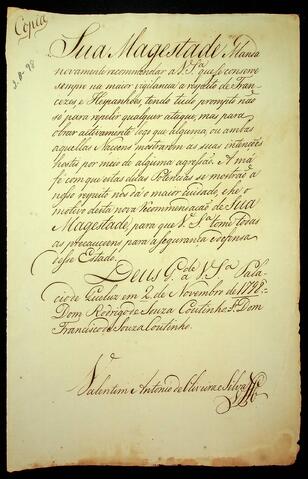 Copia
2-11-98
Sua Magestade Manda
novamente recommendar a V. S.ª que se conserve
sempre na maior vigilancia a respeito de Fran-
cezes e Hespanhoes, tendo tudo prompto não
só para repelir qualquer ataque, mas para
obrar activamente logo que alguma, ou ambas
aquellas Nacoens mostrarem as suas intençoẽs
hostis por meio de alguma agressão. A má
fé com que estas ditas Potencias se mostrão a
nosso respeito nos dá o maior cuidado, e he o
motivo desta nova Recommendação de Sua
Magestade, para que V. S.ª tome todas
as precauçoens para a segurança e defensa
desse Estado.
Deos G.de a V. S.ª Pala-
cio de Queluz em 2 de Novembro de 1798.
Dom Rodrigo de Souza Coutinho. S.r Dom
Francisco de Souza Coutinho.
Valentim Antonio de Oliveira e Silva